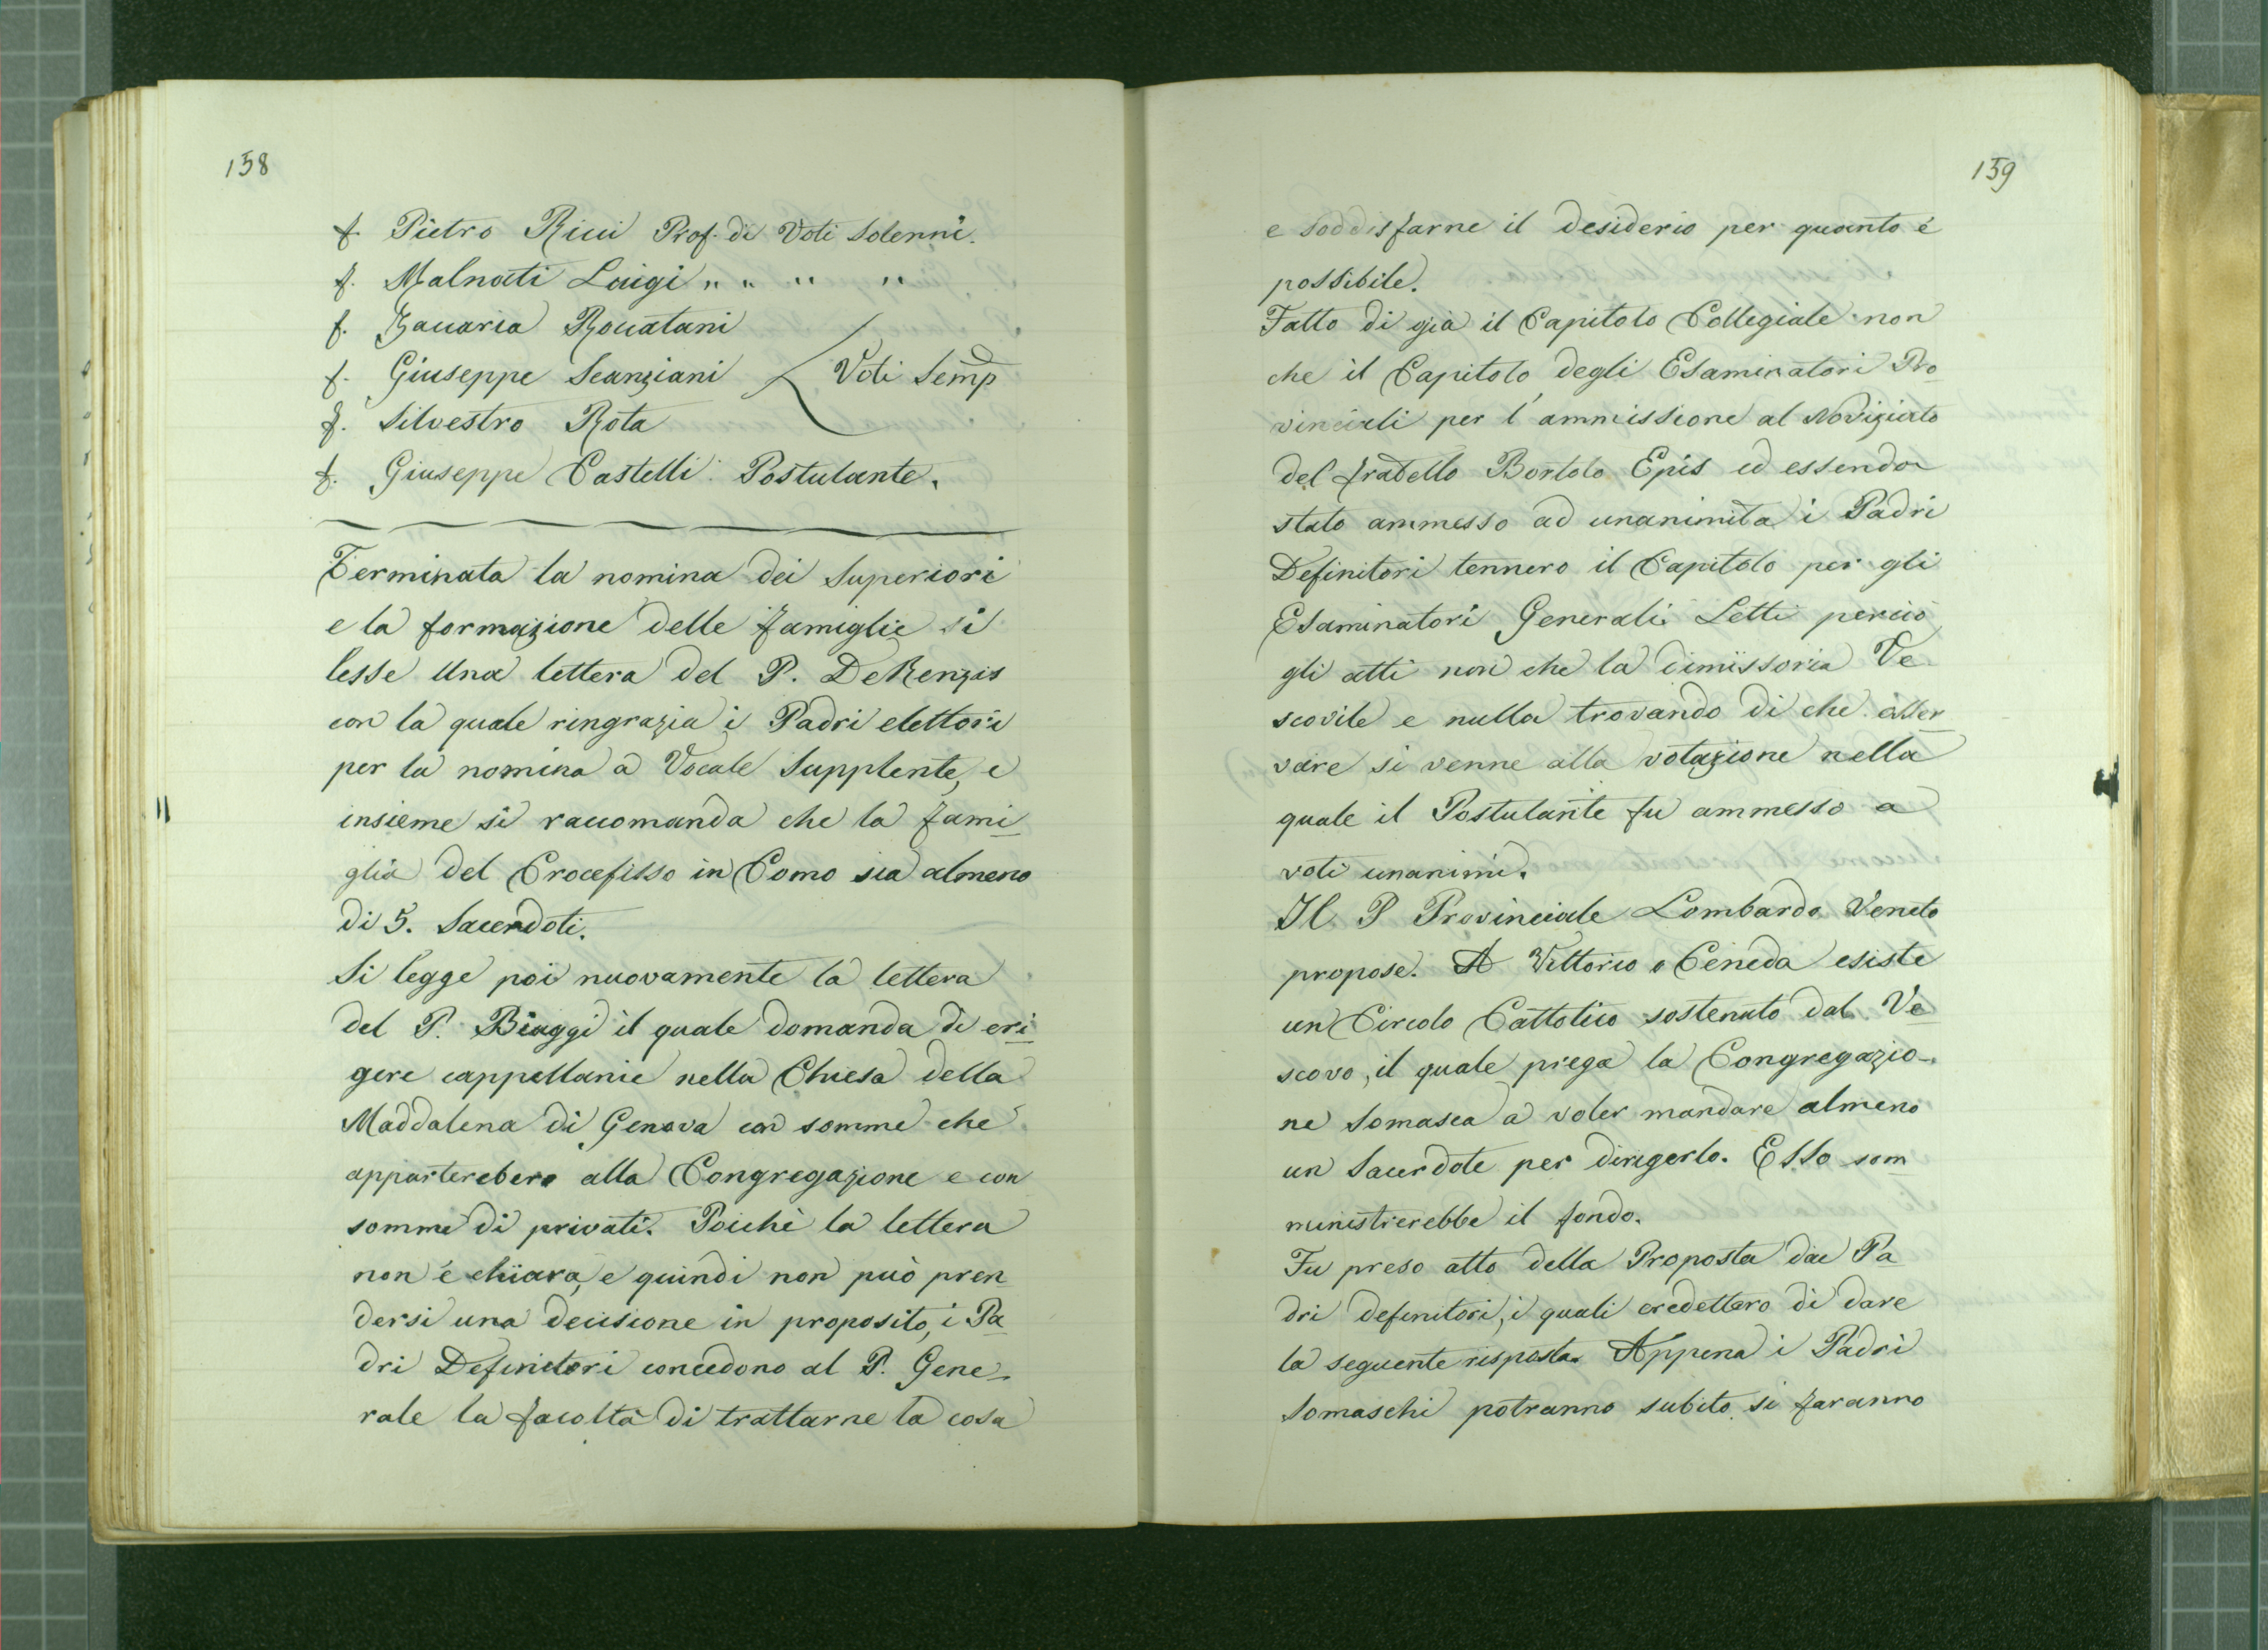 158
f. Pietro Ricci Prof. di Voti Solenni.
f. Malnati Luigi " " " "
f. Zaccaria Roncatani
f. Giuseppe Scanziani Voti Semp
f. Silvestro Rota
f. Giuseppe Castelli Postulante.
Terminata la nomina dei Superiori
e la formazione delle famiglie si
lesse una lettera del P. DeRenzis
con la quale ringrazia i Padri elettori
per la nomina a Vocale Supplente, e
insieme si raccomanda che la fami
glia del Crocefisso in Como sia almeno
di 5. Sacerdoti.
Si legge poi nuovamente la lettera
del P. Biaggi il quale domanda di eri
gere cappellanie nella Chiesa della
Maddalena di Genova con somme che
apparterebero alla Congregazione e con
somme di privati. Poichè la lettera
non è chiara, e quindi non può pren
dersi una decisione in proposito, i Pa
dri Definitori concedono al P. Gene-
rale la facoltà di trattarne la cosa
159
e soddisfarne il desiderio per quanto è
possibile.
Fatto di già il Capitolo Collegiale non
che il Capitolo degli Esaminatori Pro
vinciali per l'ammissione al Noviziato
del fratello Bortolo Epis ed essendo
stato ammesso ad unanimita i Padri
Definitori tennero il Capitolo per gli
Esaminatori Generali. Letti perciò
gli atti non che la dimissoria Ve
scovile e nulla trovando di che osser
vare si venne alla votazione nella
quale il Postulante fu ammesso a
voti unanimi.
Il P Provinciale Lombardo Veneto
propose. A Vittorio o Ceneda esiste
un Circolo Cattolico sostenuto dal Ve
scovo, il quale prega la Congregazio-
ne Somasca a voler mandare almeno
un Sacerdote per dirigerlo. Esso som
ministrerebbe il fondo.
Fu preso atto della Proposta dai Pa
dri definitori, i quali credettero di dare
la seguente risposta. Appena i Padri
Somaschi potranno subito si faranno